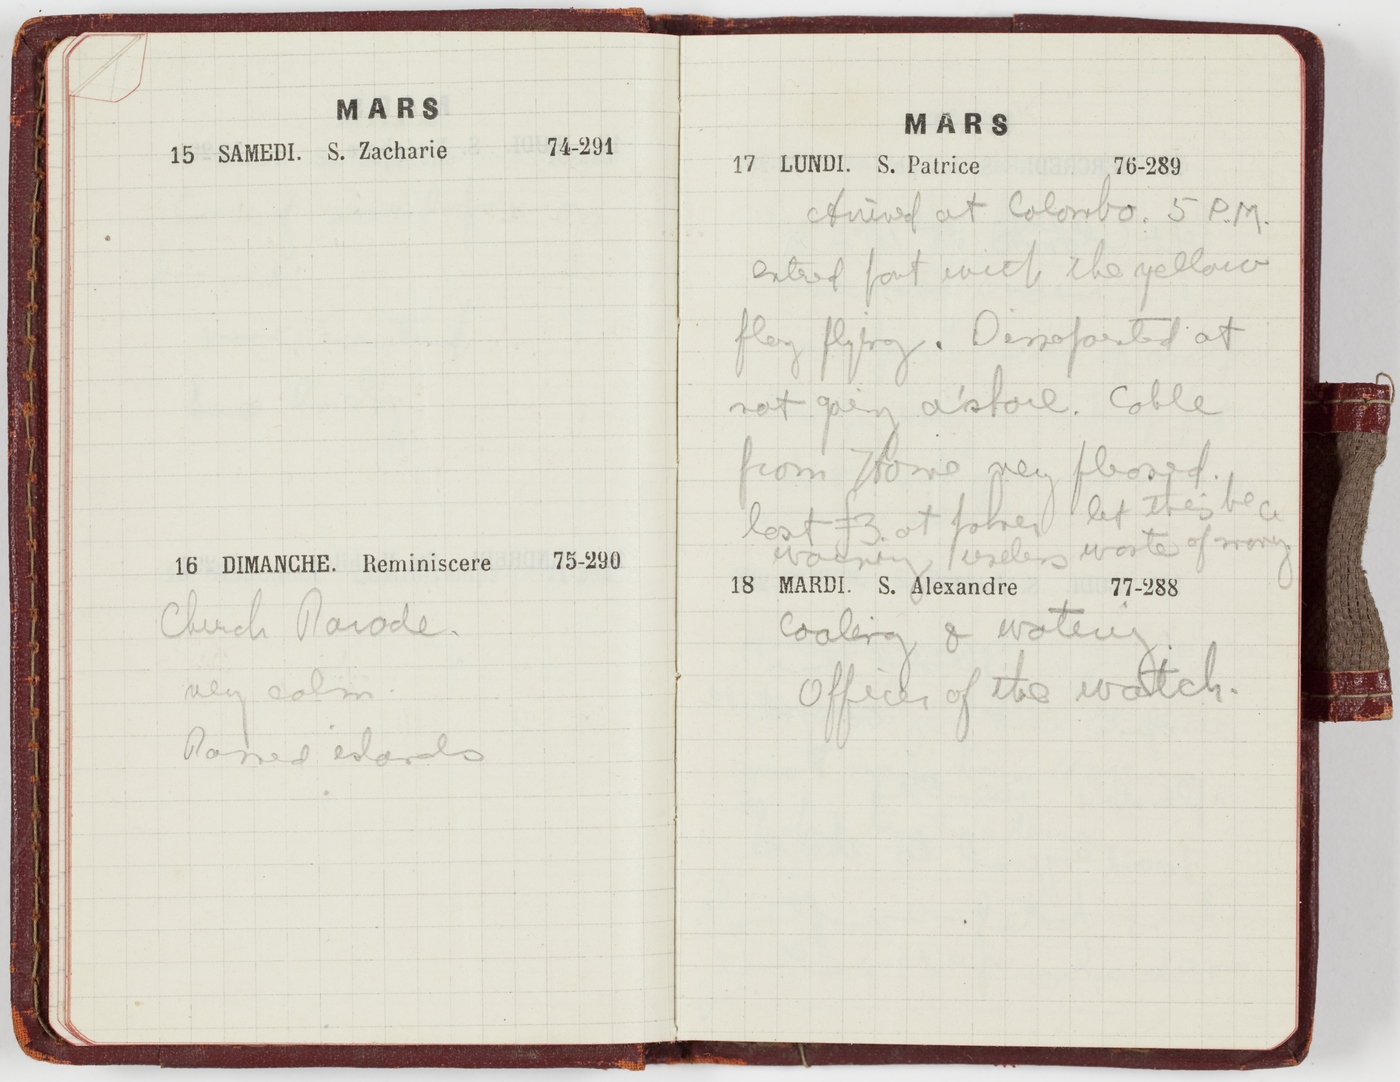 MARS
15 SAMEDI. S. Zacharie 74-291
16 DIMANCHE. Reminiscere 75-290
Church Parade.
very calm.
Passed islands
MARS
17 LUNDI. S. Patrice 76-289
Arrived at Colombo. 5 P.M.
entred port with the yellow
flag flying. Dissapointed at
not going a'shore. Cable
from Home very pleased.
lost £3. at poker let this be a
warning useless waste of money
18 MARDI. S. Alexandre 77-288
Coaling & watering.
Officer of the watch.